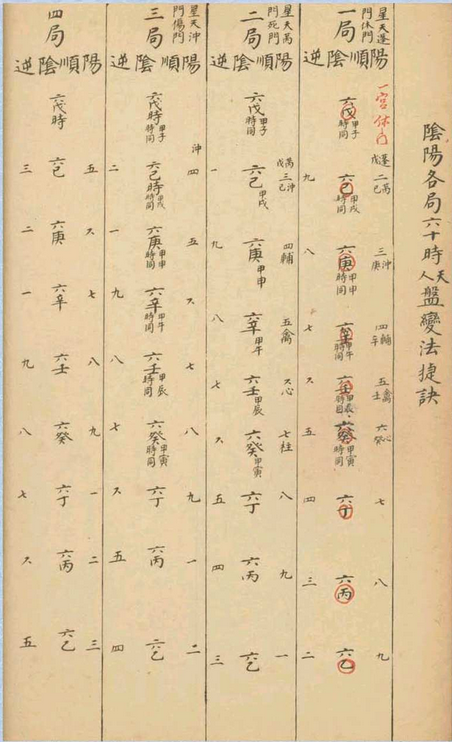 陰陽各局六十時天人盤變法捷訣
星天蓬
門休門
一局
陽順陰逆
一宮休門
蓬戊
六戊甲子時同
二芮己
六己甲戌時同
九
三沖庚
六庚甲申時同
八
四輔辛
六辛甲午時同
七
五禽壬
六壬甲辰時同
六
六心癸
六癸甲寅時同
五
七
六丁
四
八
六丙
三
九
六乙
二
星天芮
門死門
二局
陽順陰逆
六戊甲子時同
三沖己
六己甲戌
一
四輔
六庚甲申
九
五禽
六辛甲午
八
六心
六壬甲辰
七
七柱
六癸甲寅
六
八
六丁
五
九
六丙
四
一
六乙
三
星天沖
門傷門
三局
陽順陰逆
沖
六戊甲子時同
四
六己時甲戌時同
二
五
六庚甲申時同
一
六
六辛甲午時同
九
七
六壬甲辰時同
八
八
六癸甲寅時同
七
九
六丁
六
一
六丙
五
二
六乙
四
四局
陽順陰逆
六戊時
五
六己
三
六
六庚
二
七
六辛
一
八
六壬
九
九
六癸
八
一
六丁
七
二
六丙
六
三
六乙
五